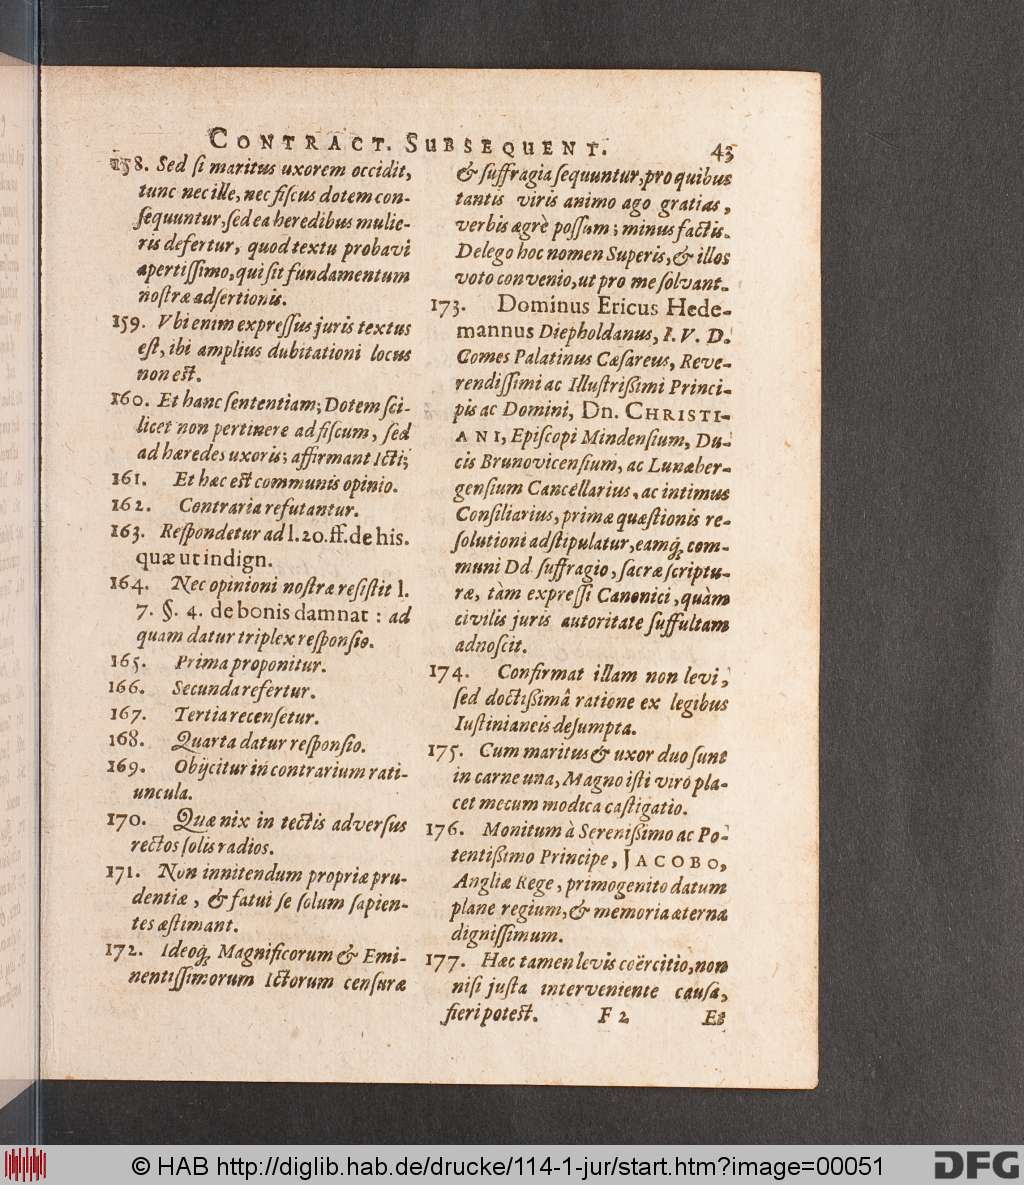 CONTRACT. SUBSEQUENT. 43
158. Sed si maritus uxorem occidit,
tunc nec ille, nec fiscus dotem con-
sequuntur, sed ea heredibus mulie-
ris defertur, quod textu probavi
apertissimo, qui sit fundamentum
nostræ adsertionis.
159. Vbi enim expressus juris textus
est, ibi amplius dubitationi locus
non est.
160. Et hanc sententiam; Dotem sci-
licet non pertinere ad fiscum, sed
ad hæredes uxoris; affirmant Icti;
161. Et hæc est communis opinio.
162. Contraria refutantur.
163. Respondetur ad l. 20. ff. de his.
quæ ut indign.
164. Nec opinioni nostræ resistit l.
7. §. 4. de bonis damnat : ad
quam datur triplex responsio.
165. Prima proponitur.
166. Secunda refertur.
167. Tertia recensetur.
168. Quarta datur responsio.
169. Objicitur in contrarium rati-
uncula.
170. Quæ nix in tectis adversus
rectos solis radios.
171. Non innitendum propriæ pru-
dentiæ, & fatui se solum sapien-
tes æstimant.
172. Ideoq́; Magnificorum & Emi-
nentissimorum Ictorum censuræ
& suffragia sequuntur, pro quibus
tantis viris animo ago gratias,
verbis ægrè possum; minus factis.
Delego hoc nomen Superis, & illos
voto convenio, ut pro me solvant.
173. Dominus Ericus Hede-
mannus Diepholdanus, I. V. D.
Comes Palatinus Cæsareus, Reve-
rendissimi ac Illustrißimi Princi-
pis ac Domini, Dn. CHRISTI-
ANI, Episcopi Mindensium, Du-
cis Brunovicensium, ac Lunæber-
gensium Cancellarius, ac intimus
Consiliarius, primæ quæstionis re-
solutioni adstipulatur, eamq́; com-
muni Dd suffragio, sacræ scriptu-
ræ, tàm expressi Canonici, quàm
civilis juris autoritate suffultam
adnoscit.
174. Confirmat illam non levi,
sed doctißimâ ratione ex legibus
Iustinianeis desumpta.
175. Cum maritus & uxor duo sunt
in carne una, Magno isti viro pla-
cet mecum modica castigatio.
176. Monitum à Serenißimo ac Po-
tentißimo Principe, JACOBO,
Angliæ Rege, primogenito datum
plane regium, & memoria æterna
dignissimum.
177. Hæc tamen levis coërcitio, non
nisi justa interveniente causa,
fieri potest. F 2 Et
© HAB http://diglib.hab.de/drucke/114-1-jur/start.htm?image=00051
DFG